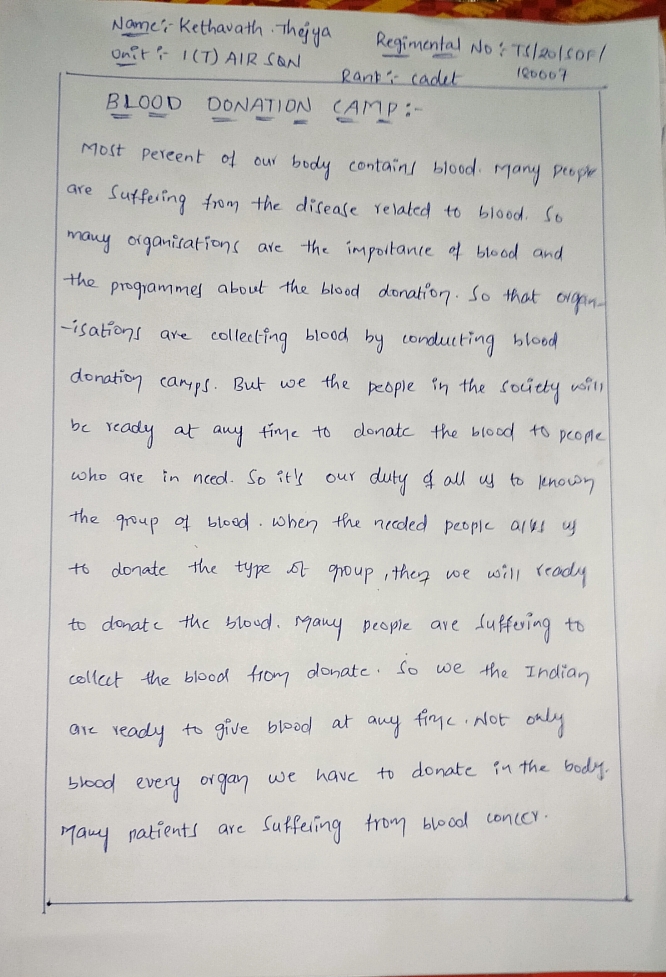 Name:- Kethavath. Thejya
Regimental No: TS/20/SDF/
Unit :- 1(T) AIR SQN
Rank :- cadet
180007
BLOOD DONATION CAMP:-
Most percent of our body contains blood. Many people
are suffering from the disease related to blood. So
many organisations are the importance of blood and
the programmes about the blood donation. So that organ-
-isations are collecting blood by conducting blood
donation camps. But we the people in the society will
be ready at any time to donate the blood to people
who are in need. So it's our duty of all us to known
the group of blood. When the needed people asks us
to donate the type of group, then we will ready
to donate the blood. Many people are suffering to
collect the blood from donate. So we the Indian
are ready to give blood at any time. Not only
blood every organ we have to donate in the body.
Many patients are suffering from blood concer.